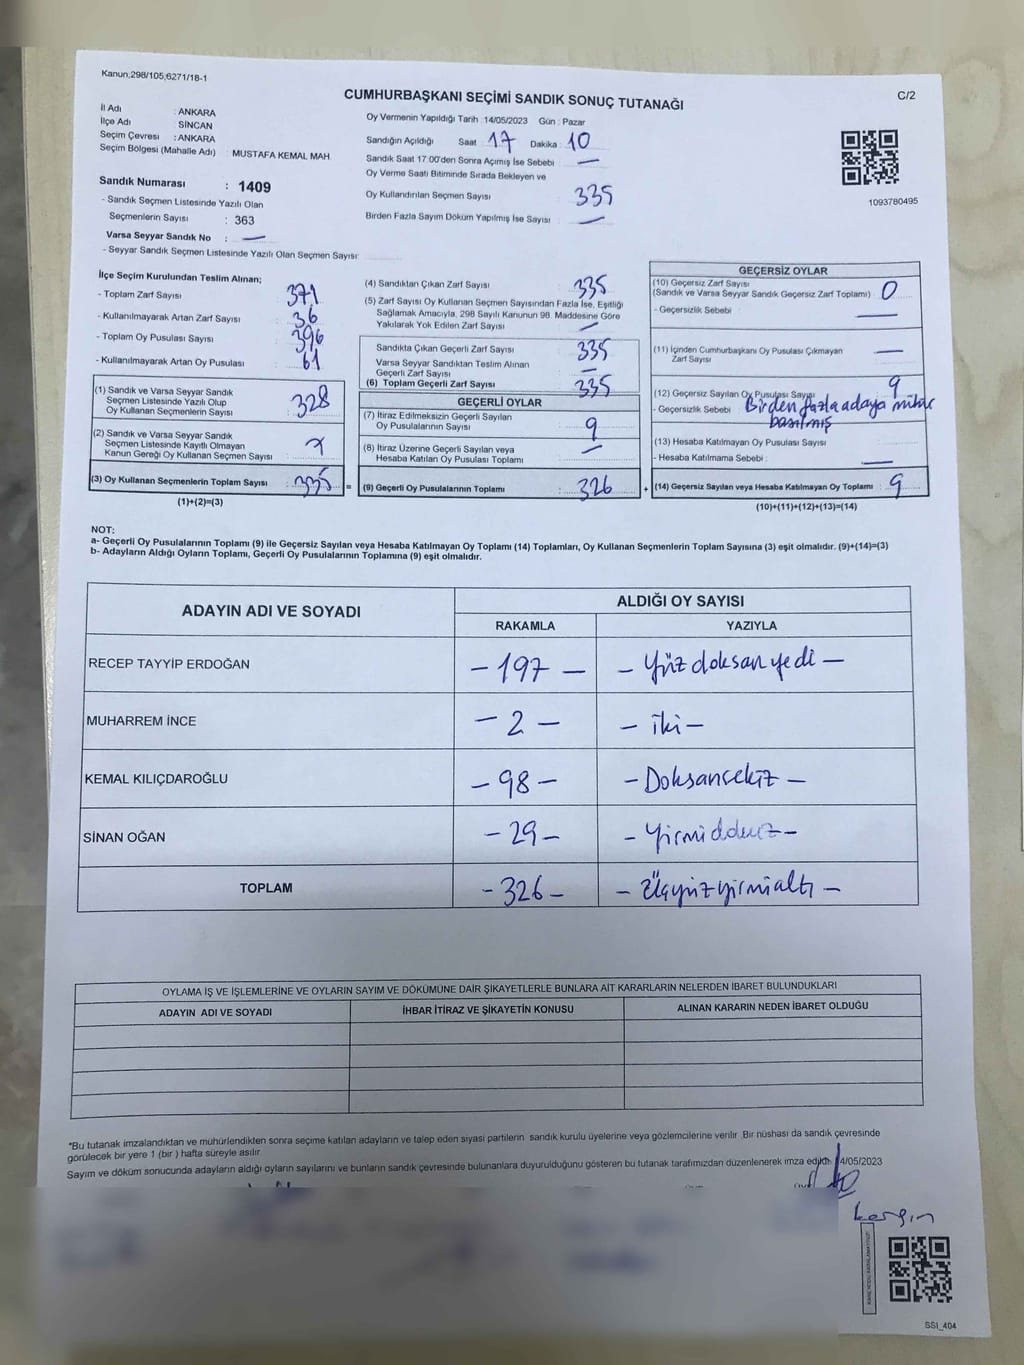 Kanun,298/105,6271/18-1
C/2
CUMHURBAŞKANI SEÇİMİ SANDIK SONUÇ TUTANAĞI
İl Adı : ANKARA
İlçe Adı SİNCAN
Seçim Çevresi : ANKARA
Seçim Bölgesi (Mahalle Adı) : MUSTAFA KEMAL MAH.
Sandık Numarası : 1409
- Sandık Seçmen Listesinde Yazılı Olan
Seçmenlerin Sayısı : 363
Varsa Seyyar Sandık No : —
- Seyyar Sandık Seçmen Listesinde Yazılı Olan Seçmen Sayısı:
Oy Vermenin Yapıldığı Tarih :14/05/2023 Gün : Pazar
Sandığın Açıldığı Saat 17 Dakika : 10
Sandık Saat 17:00'den Sonra Açımış İse Sebebi : —
Oy Verme Saati Bitiminde Sırada Bekleyen ve
Oy Kullandırılan Seçmen Sayısı 335
Birden Fazla Sayım Döküm Yapılmış İse Sayısı : —
1093780495
İlçe Seçim Kurulundan Teslim Alınan;
- Toplam Zarf Sayısı 371
- Kullanılmayarak Artan Zarf Sayısı : 36
- Toplam Oy Pusulası Sayısı 396
- Kullanılmayarak Artan Oy Pusulası : 61
(1) Sandık ve Varsa Seyyar Sandık
Seçmen Listesinde Yazılı Olup
Oy Kullanan Seçmenlerin Sayısı : 328
(2) Sandık ve Varsa Seyyar Sandık
Seçmen Listesinde Kayıtlı Olmayan
Kanun Gereği Oy Kullanan Seçmen Sayısı : 7
(3) Oy Kullanan Seçmenlerin Toplam Sayısı : 335 =
(1)+(2)=(3)
(4) Sandıktan Çıkan Zarf Sayısı 335
(5) Zarf Sayısı Oy Kullanan Seçmen Sayısından Fazla İse, Eşitliği
Sağlamak Amacıyla, 298 Sayılı Kanunun 98. Maddesine Göre
Yakılarak Yok Edilen Zarf Sayısı : —
Sandıkta Çıkan Geçerli Zarf Sayısı : 335
Varsa Seyyar Sandıktan Teslim Alınan
Geçerli Zarf Sayısı —
(6) Toplam Geçerli Zarf Sayısı : 335
GEÇERLİ OYLAR
(7) İtiraz Edilmeksizin Geçerli Sayılan
Oy Pusulalarının Sayısı : 9
(8) İtiraz Üzerine Geçerli Sayılan veya
Hesaba Katılan Oy Pusulası Toplamı : —
(9) Geçerli Oy Pusulalarının Toplamı : 326 +
GEÇERSİZ OYLAR
(10) Geçersiz Zarf Sayısı
(Sandık ve Varsa Seyyar Sandık Geçersiz Zarf Toplamı) : 0
- Geçersizlik Sebebi : —
(11) İçinden Cumhurbaşkanı Oy Pusulası Çıkmayan
Zarf Sayısı : —
(12) Geçersiz Sayılan Oy Pusulası Sayısı : 9
- Geçersizlik Sebebi : Birden fazla adaya mühür
basılmış
(13) Hesaba Katılmayan Oy Pusulası Sayısı
- Hesaba Katılmama Sebebi : —
(14) Geçersiz Sayılan veya Hesaba Katılmayan Oy Toplamı : 9
(10)+(11)+(12)+(13)=(14)
NOT:
a- Geçerli Oy Pusulalarının Toplamı (9) ile Geçersiz Sayılan veya Hesaba Katılmayan Oy Toplamı (14) Toplamları, Oy Kullanan Seçmenlerin Toplam Sayısına (3) eşit olmalıdır. (9)+(14)=(3)
b- Adayların Aldığı Oyların Toplamı, Geçerli Oy Pusulalarının Toplamına (9) eşit olmalıdır.
ADAYIN ADI VE SOYADI
ALDIĞI OY SAYISI
RAKAMLA YAZIYLA
RECEP TAYYİP ERDOĞAN - 197 - - Yüz doksan yedi -
MUHARREM İNCE - 2 - - iki -
KEMAL KILIÇDAROĞLU - 98 - - Doksansekiz -
SİNAN OĞAN - 29 -
TOPLAM - 326 - - Üçyüzyirmialtı -
OYLAMA İŞ VE İŞLEMLERİNE VE OYLARIN SAYIM VE DÖKÜMÜNE DAİR ŞİKAYETLERLE BUNLARA AİT KARARLARIN NELERDEN İBARET BULUNDUKLARI
ADAYIN ADI VE SOYADI İHBAR İTİRAZ VE ŞİKAYETİN KONUSU ALINAN KARARIN NEDEN İBARET OLDUĞU
*Bu tutanak imzalandıktan ve mühürlendikten sonra seçime katılan adayların ve talep eden siyasi partilerin sandık kurulu üyelerine veya gözlemcilerine verilir. Bir nüshası da sandık çevresinde
görülecek bir yere 1 (bir ) hafta süreyle asılır.
Sayım ve döküm sonucunda adayların aldığı oyların sayılarını ve bunların sandık çevresinde bulunanlara duyurulduğunu gösteren bu tutanak tarafımızdan düzenlenerek imza edildi. 14/05/2023
SSI_404